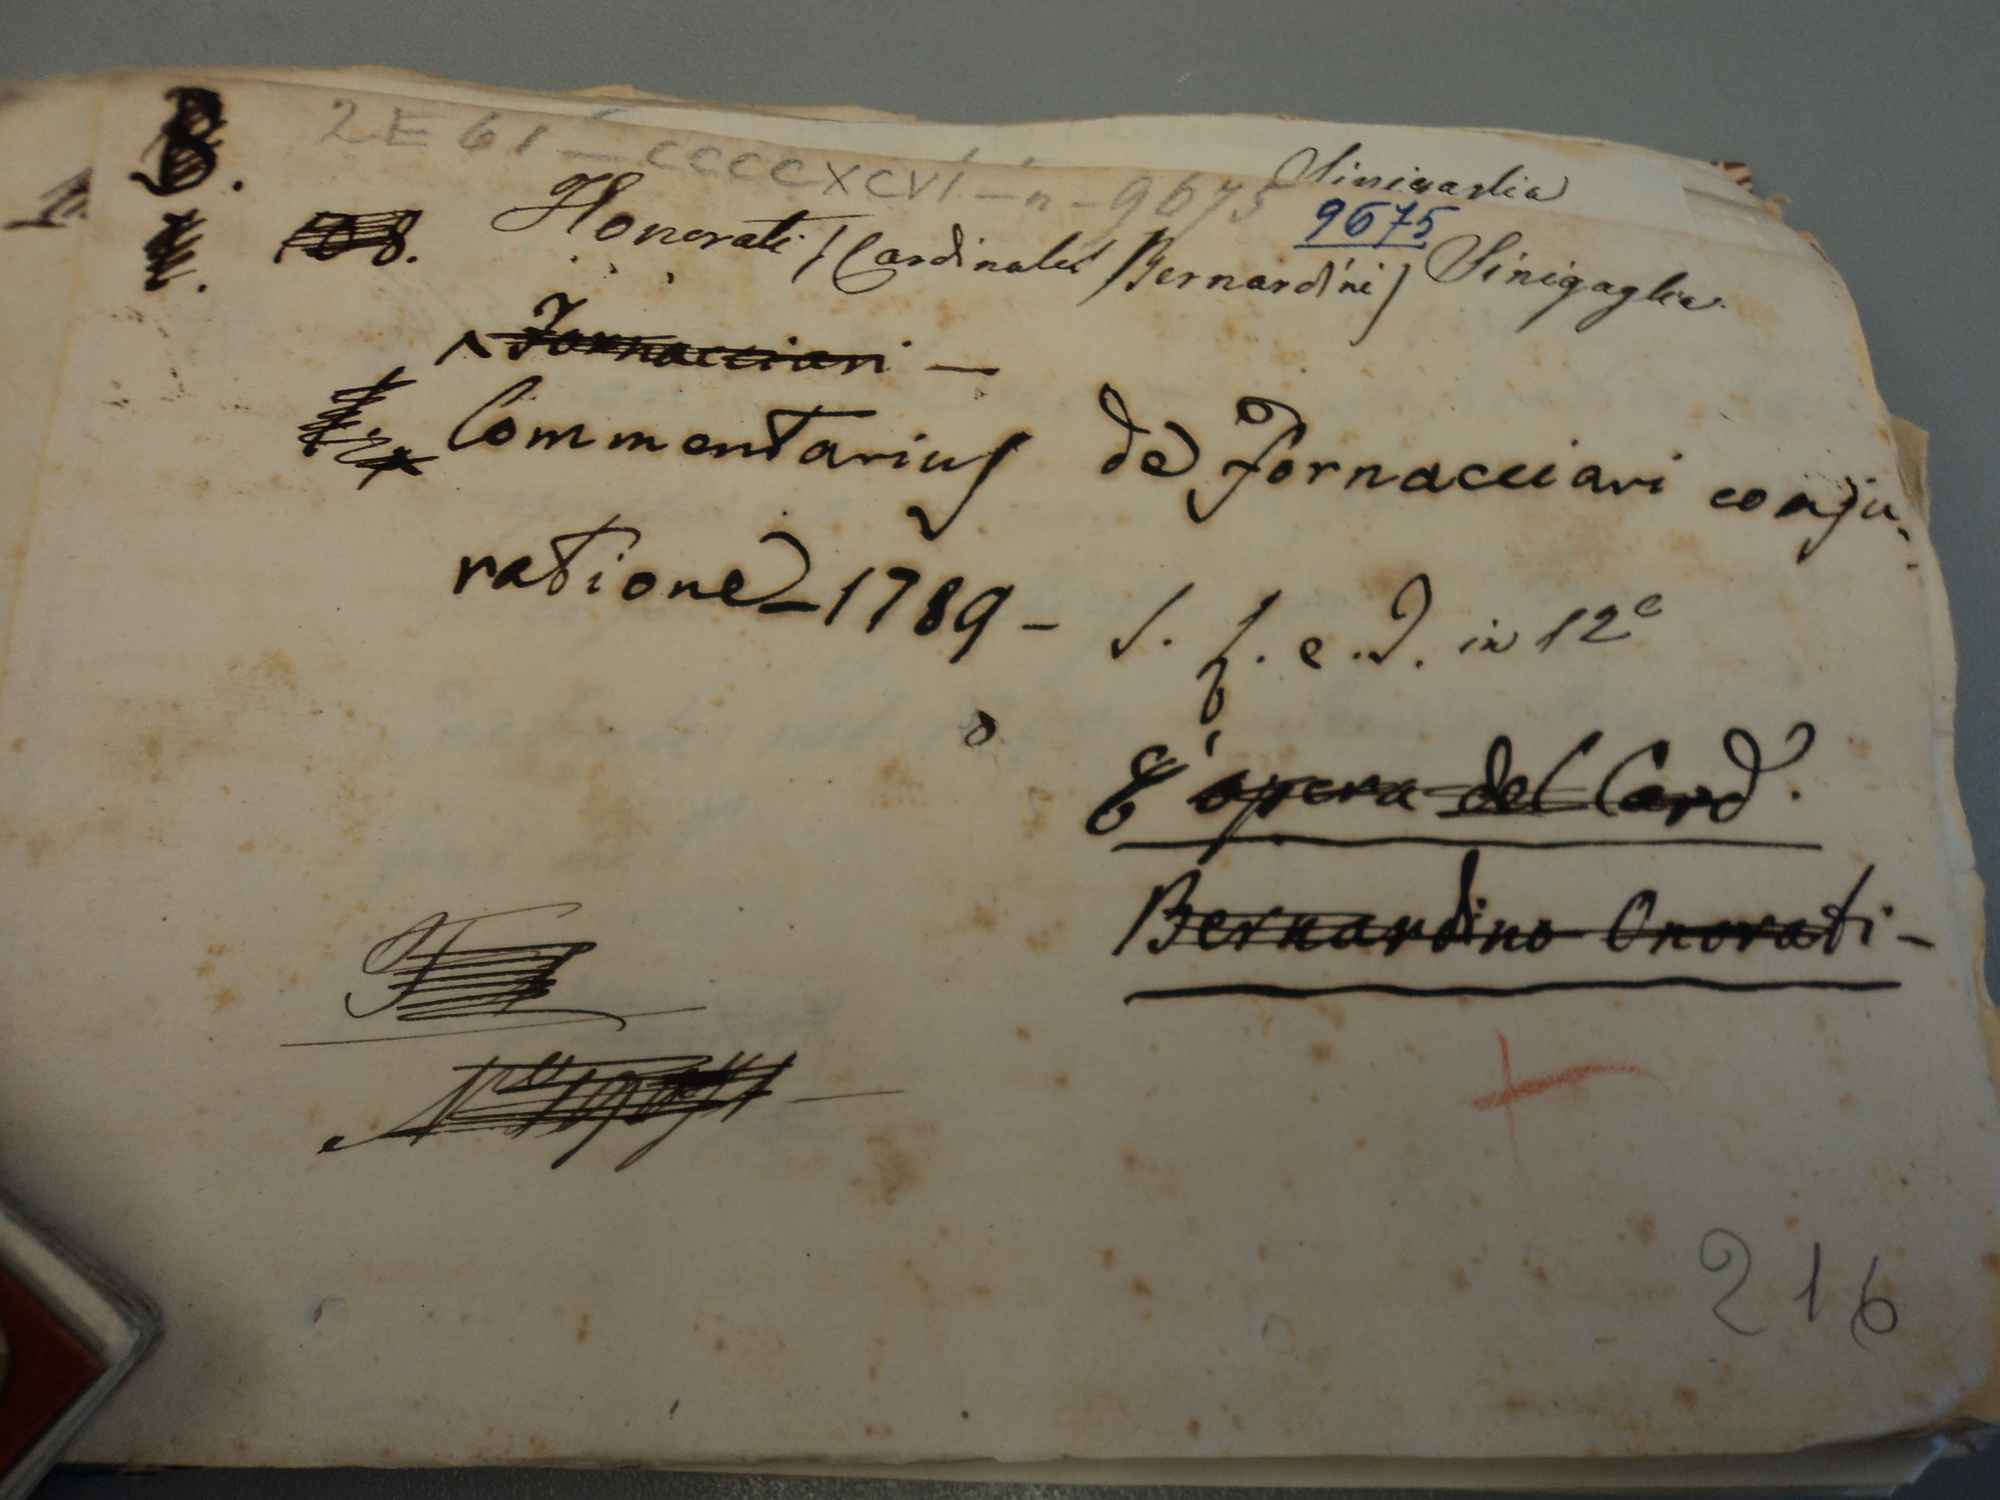 B.
2E 61 – CCCCXCVI – n – 9675
Sinigaglia
9675
108. Honorati (Cardinalis Bernardini) Sinigaglia
Fornacciari –
Commentarius de Fornacciari conju-
ratione – 1789 – S. f. e. I. in 12°
E' opera del Card.
Bernardino Onorati –
216